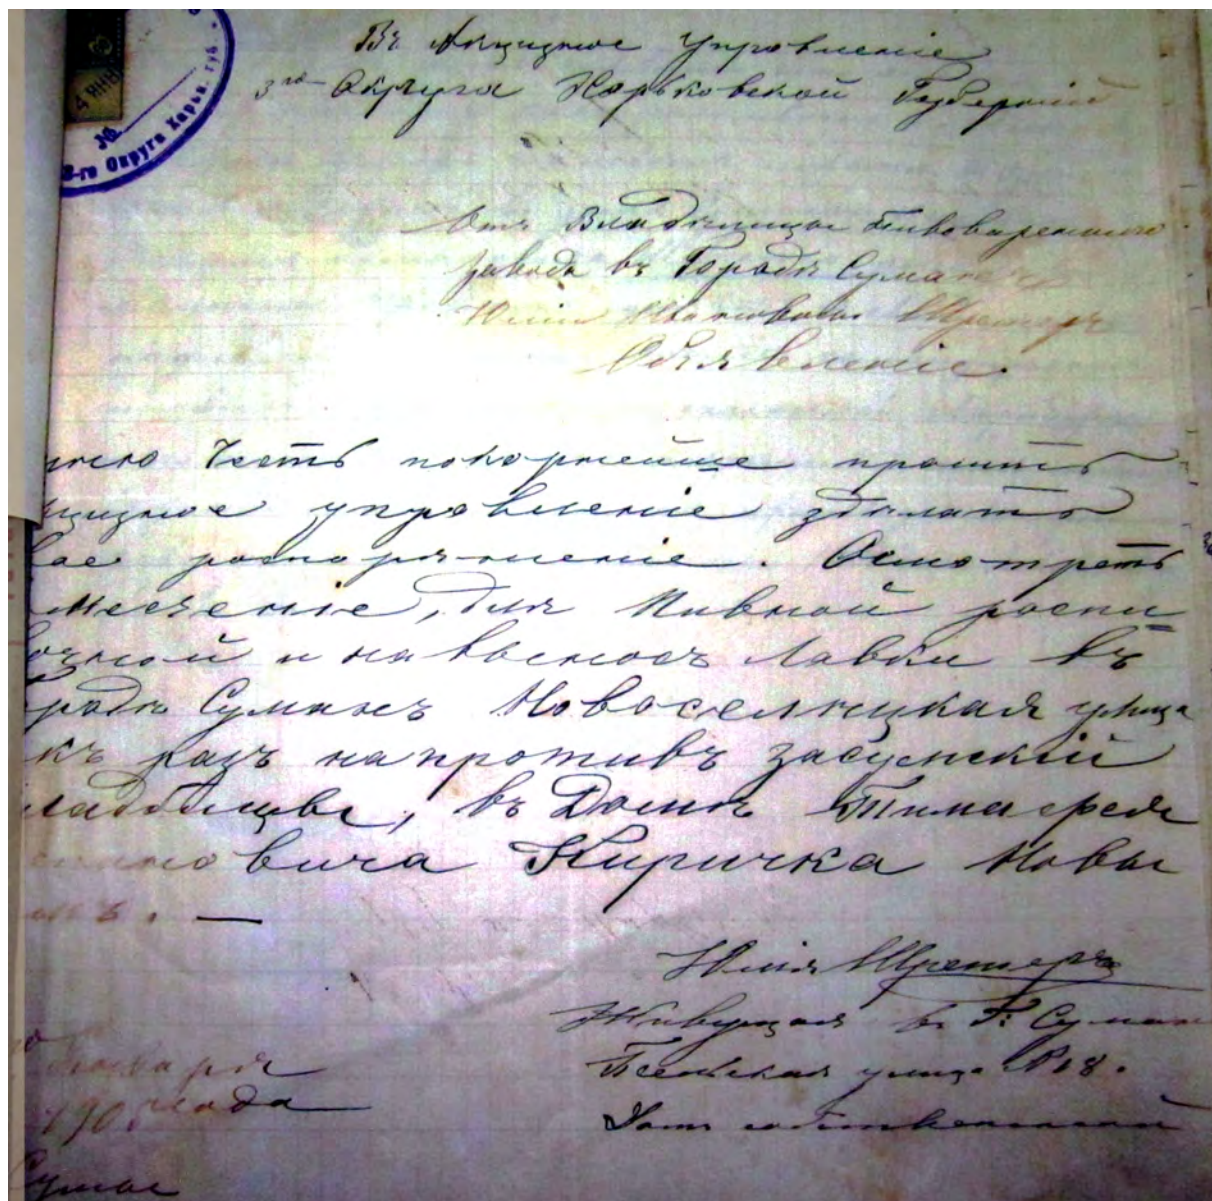 4 ЯНВ
№
3-го Округа Харьк. губ.
Въ Акцизное Управленіе
3го Округа Харьковской Губерніи
Отъ Владѣлицы Пивоваренного
завода въ Городѣ Сумахъ
Юліи Ивановны Шретеръ
Объявленіе.
честь покорнейше просить
цизное управленіе здѣлать
роспоряженіе. Осмотреть
месченіе, для Пивной роспи
очной и на выносъ Лавки въ
родѣ Сумахъ Новоселицкая улица
къ разъ напротивъ засумскій
ладбище, въ Домѣ Тимафея
овича Киричка Новы
Юлія Шретеръ
Живущая въ Г: Сумахъ
Псельская улица №18.
Домъ собственный
Января
190 года
Сумы